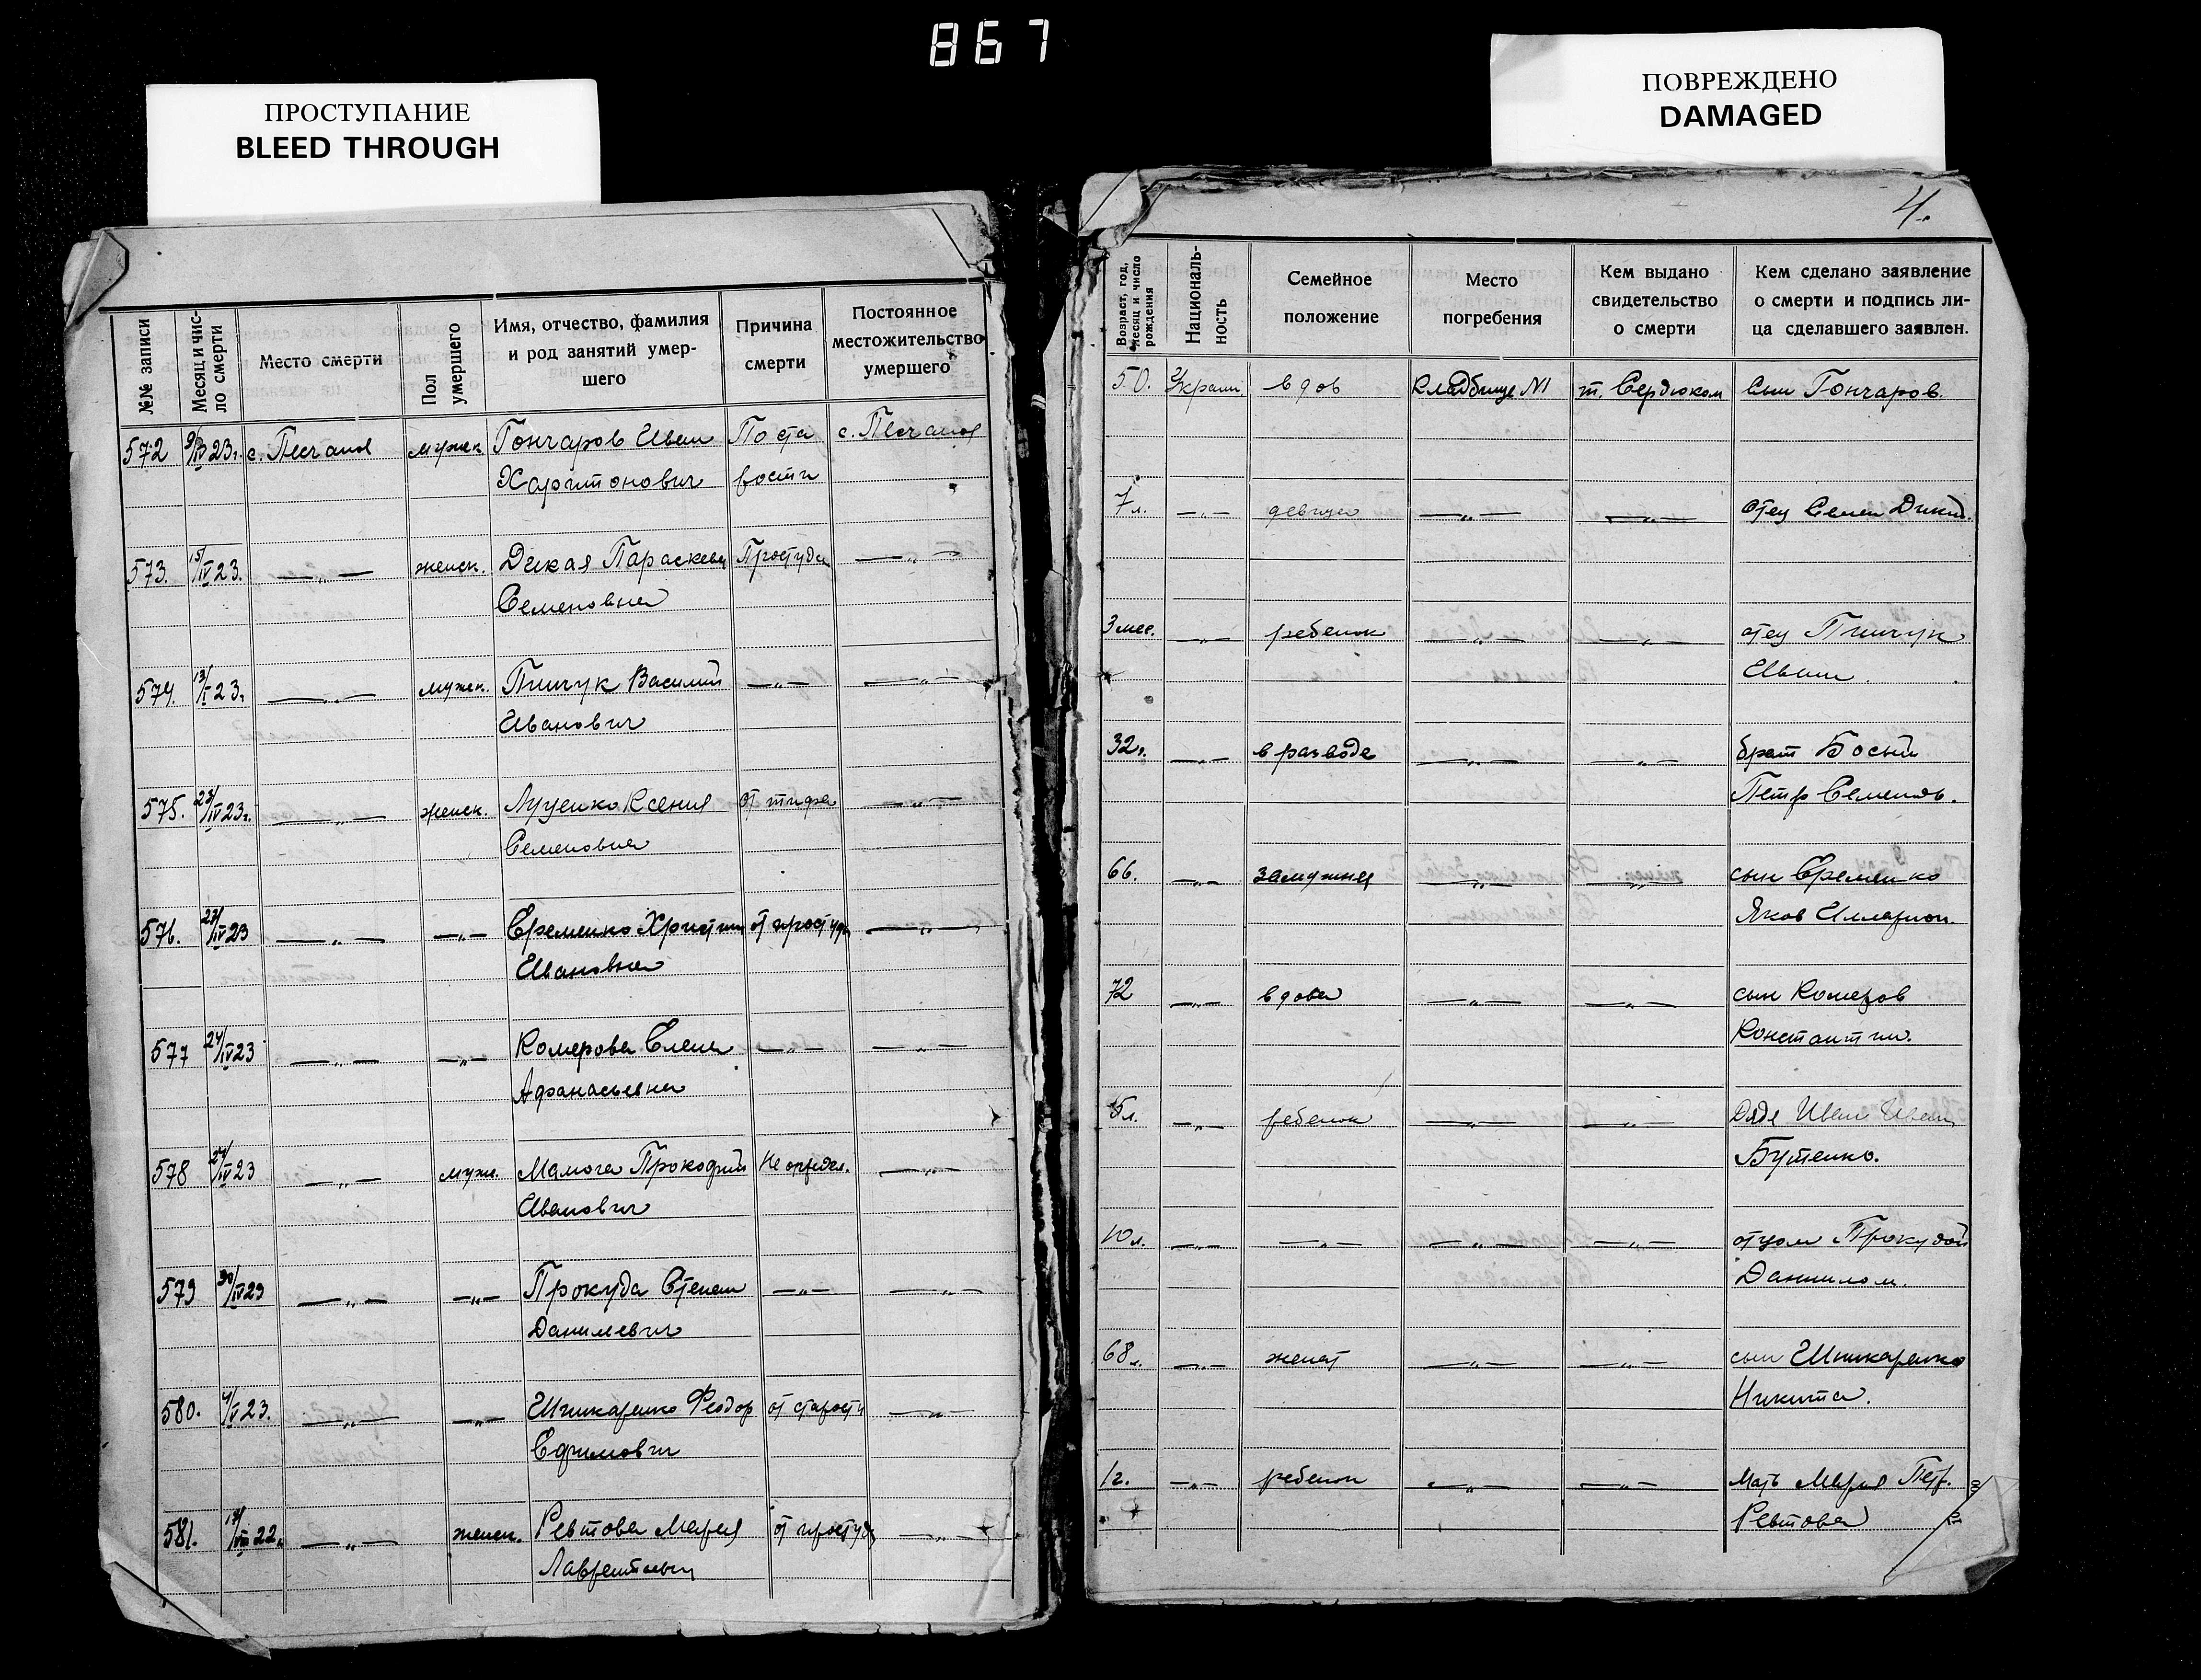 867
ПРОСТУПАНИЕ
BLEED THROUGH
ПОВРЕЖДЕНО
DAMAGED
№№ записи
Месяц и чис-
ло смерти
Место смерти
Пол
умершего
Имя, отчество, фамилия
и род занятий умер-
шего
Причина
смерти
Постоянное
местожительство
умершего
572 9/IV 23г. с. Песчаное мужск. Гончаров Иван По ста с. Песчаное
Харитонович рости
573. 15/IV 23. —„— женск. Дикая Параскева Простуда —„—
Семеновна
574. 13/I 23. —„— мужск. Пинчук Василий —„— —„—
Иванович
575. 23/IV 23г. —„— женск. Луценко Ксения от тифа —„—
Семеновна
576. 23/IV 23 —„— —„— Еременко Христин от простуды —„—
Ивановна
577 24/IV 23 —„— —„— Комерова Елена —„— —„—
Афанасьевна
578 24/IV 23 —„— мужс. Мамога Прокофий Не определ. —„—
Иванович
579 30/IV 23 —„— —„— Прокуда Степан —„— —„—
Данилевич
580. 4/V 23. —„— —„— Шинкаренко Феодор от старости —„—
Ефимович
581. VIII 22. —„— женск. Ревтова Мария от простуды —„—
Лаврентьевн
4.
Возраст, год,
месяц и число
рождения
Националь-
ность
Семейное
положение
Место
погребения
Кем выдано
свидетельство
о смерти
Кем сделано заявление
о смерти и подпись ли-
ца сделавшего заявлен.
50. Украин. вдов Кладбище №1 т. Сердюком Сын Гончаров.
7л. —„— девица —„— —„— Отец Семен Дикий.
3 мес. —„— ребенок —„— —„— отец Пинчук
Иван.
32г. —„— в разводе —„— —„— брат Босый
Петр Семенов.
66. —„— замужняя —„— —„— сын Еременко
Яков Илларион.
72 —„— вдова —„— —„— сын Комеров
Константин.
5л. —„— ребенок —„— —„— Дядя Иван Иван
Бутенко.
10л. —„— —„— —„— —„— отцом Прокудой
Даниилом.
68л. —„— женат —„— —„— сын Шинкаренко
Никита.
1г. —„— ребенок —„— —„— Мать Мария Петр.
Ревтова